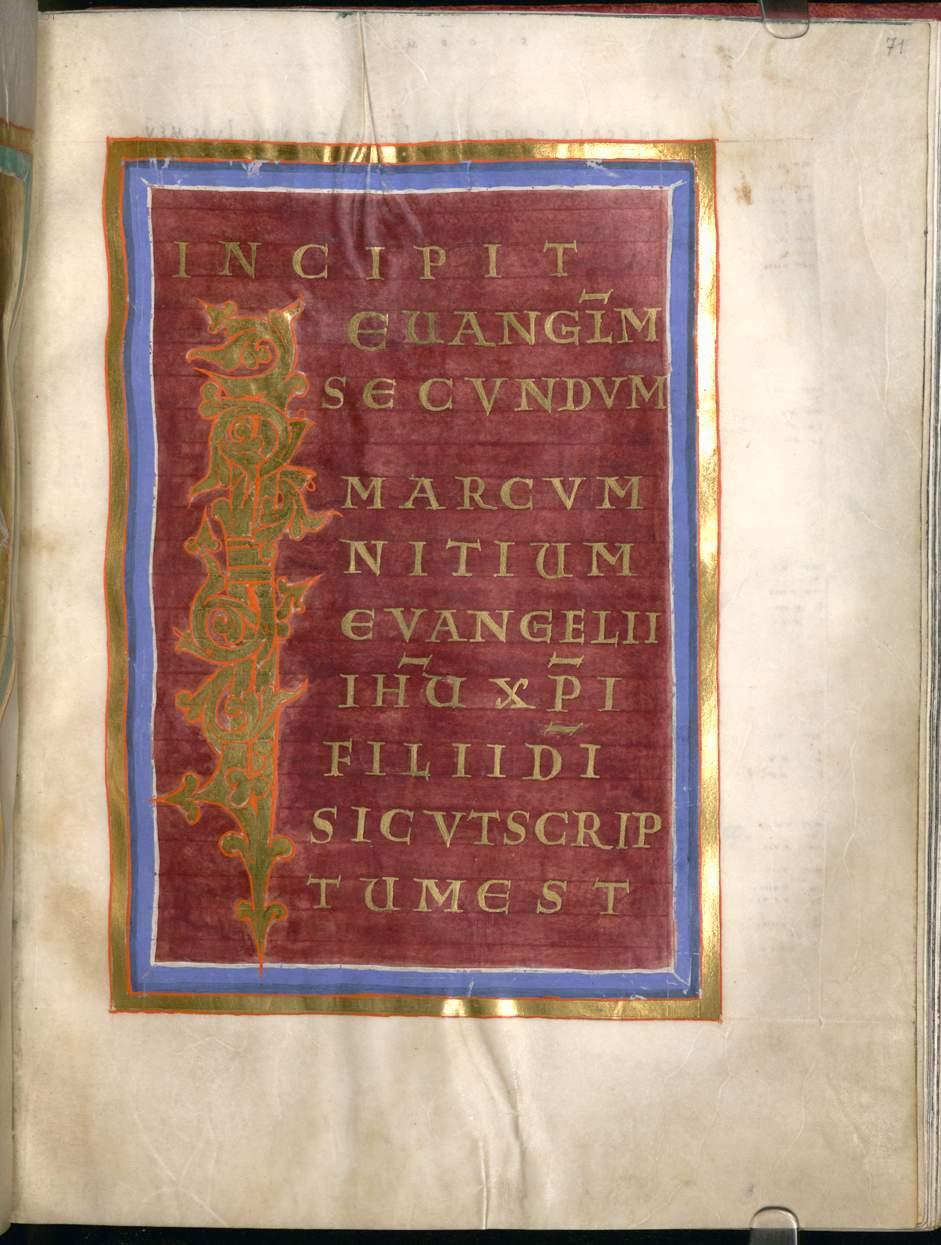 71
INCIPIT
EUANGL̅M
SECVNDVM
MARCVM
INITIUM
EVANGELII
IH̅U XP̅I
FILII D̅I
SICVT SCRIP
TUM EST